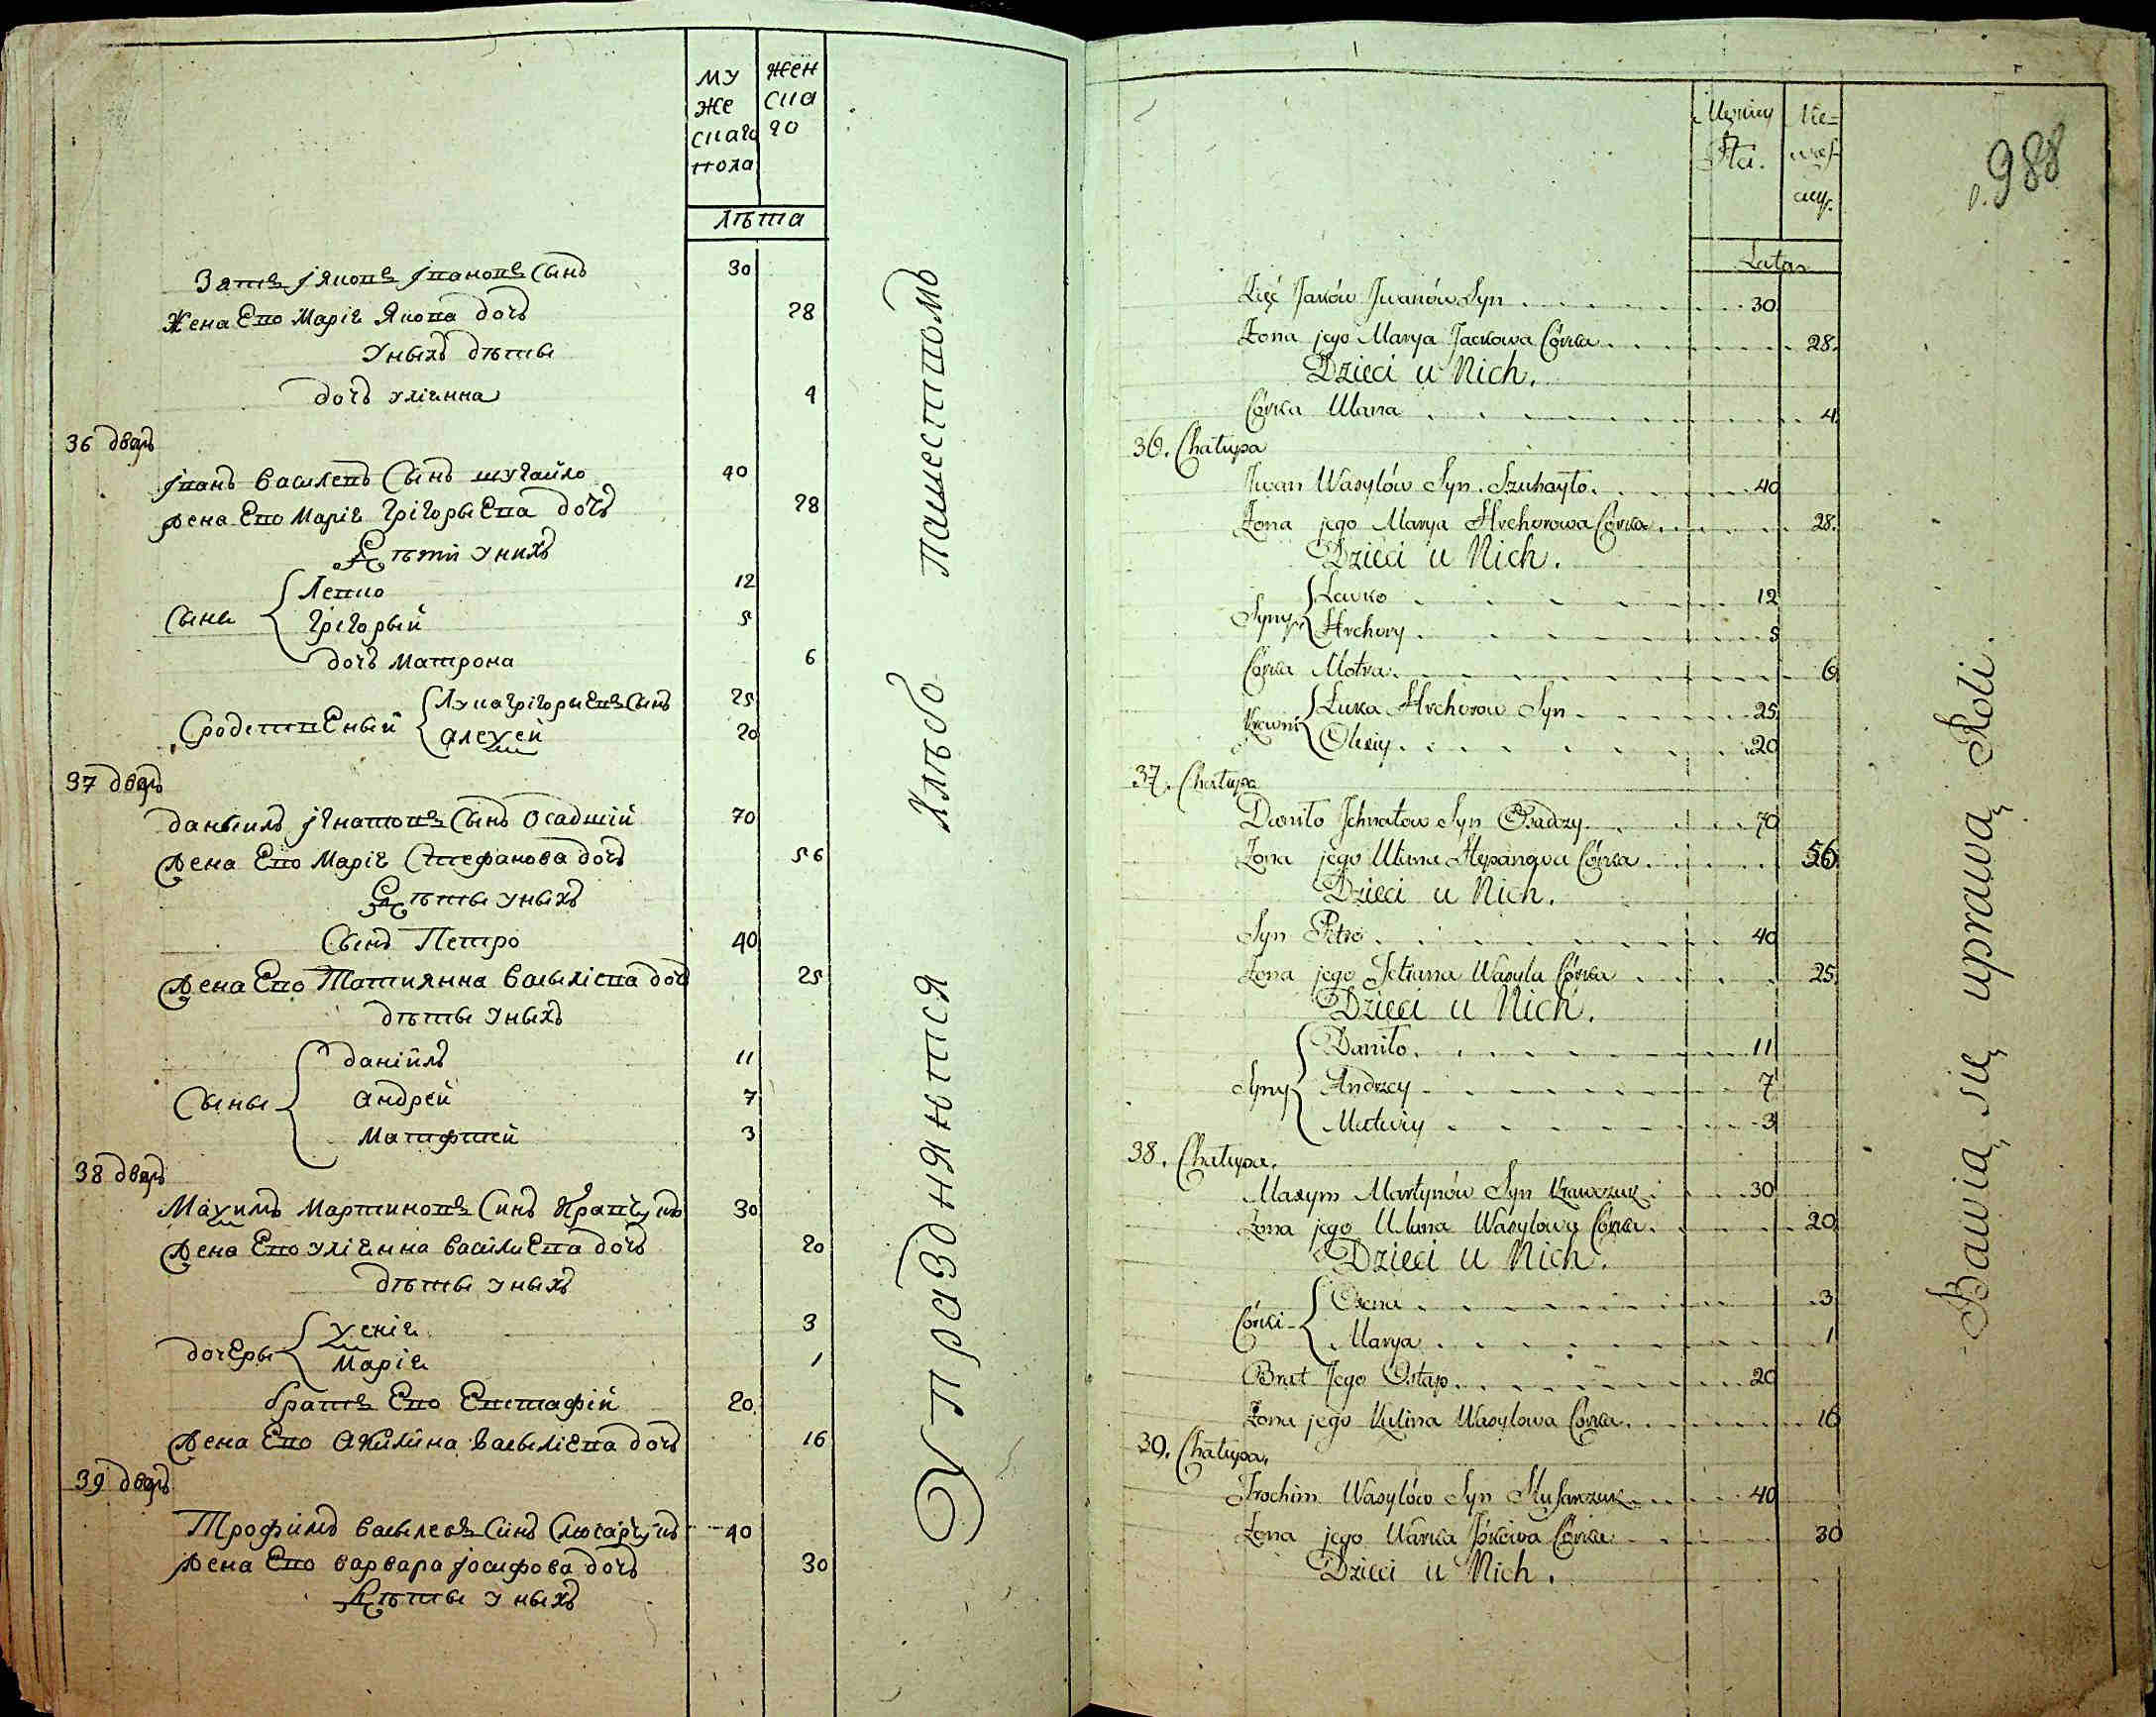 му
же
скаго
пола
жен
ска
го
лѣта
Зять Іяковъ Івановъ Сынъ 30
Жена Его Марія Якова дочъ 28
Уныхъ дѣты
дочъ Уліянна 4
36 дворъ
Іванъ Василевъ Сынъ шугайло 40
жена Его Марія Грігорыева дочъ 28
Дѣти Унихъ
Сыны
Левко 12
Грігорый 5
дочъ Матрона 6
Сродственый
Лука Грігорыевъ Сынъ 25
Алеѯей 20
37 дворъ
Даныилъ Ігнатовъ Сынъ Осадшій 70
жена Его Марія Стефанова дочъ 56
Дѣты Уныхъ
Сынъ Петро 40
жена Его Татиянна Васыліева доч 25
дѣты Уныхъ
Сыны
данійлъ 11
андрей 7
Матфтей 3
38 дворъ
Маѯимъ Мартиновъ Синъ Кравчукъ 30
жена Его Уліянна Василиева дочъ 20
дѣты Уныхъ
дочеры
Ѯенія 3
Марія 1
братъ Его Евстафій 20
жена Его Акилина Васыліева дочъ 16
39 дворъ
Трофимъ Васылевъ Синъ Слюсарчукъ 40
жена Его варвара Іосифова дочъ 30
Дѣты Уныхъ
Упраздняются Хлѣбо пашеством
988
Męzkiey
Płci.
Nie=
wieś
ciey.
Lata
Zięć Jaków Jwanów Syn 30
Żona jego Marya Jackowa Córka 28.
Dzieci u Nich.
Córka Ulana 4
36. Chałupa
Jwan Wasylów Syn Szuhayło 40
Żona jego Marya Hrehorowa Córka 28.
Dzieci u Nich.
Syny
Lewko 12
Hrehory 5
Córka Motra 6
Krewni
Łuka Hrehorow Syn 25
Olexiy 20
37. Chałupa
Daniło Jchnatow Syn Osadczy 70
Żona jego Ulana Stepanowa Córka 56
Dzieci u Nich.
Syn Petro 40
Żona jego Tetiana Wasyla Córka 25
Dzieci u Nich.
Syny
Daniło 11
Andrzey 7
Matwiy 3
38. Chałupa.
Maxym Martynów Syn Krawczuk 30
Żona jego Ulana Wasylowa Córka 20
Dzieci u Nich.
Córki
Oxena 3
Marya 1
Brat Jego Ostap 20
Żona jego Kulina Wasylowa Córka 16
39. Chałupa.
Trochim Wasylów Syn Slusarczuk 40
Żona jego Warka Jośkowa Córka 30
Dzieci u Nich.
Bawią się uprawą Roli.